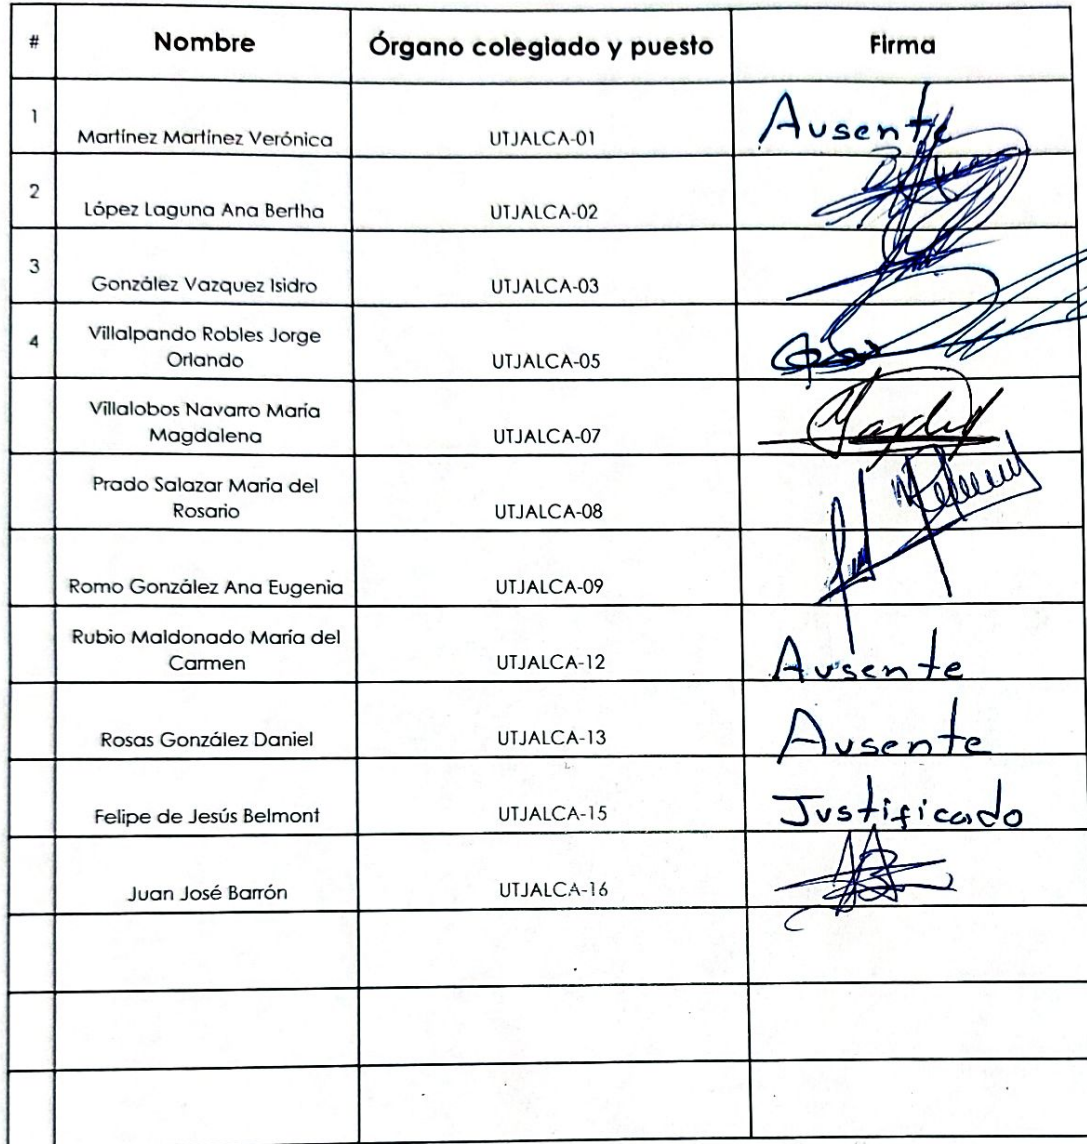 # Nombre Órgano colegiado y puesto Firma
1 Martínez Martínez Verónica UTJALCA-01 Ausente
2 López Laguna Ana Bertha UTJALCA-02
3 González Vazquez Isidro UTJALCA-03
4 Villalpando Robles Jorge
Orlando UTJALCA-05
Villalobos Navarro María
Magdalena UTJALCA-07
Prado Salazar María del
Rosario UTJALCA-08
Romo González Ana Eugenia UTJALCA-09
Rubio Maldonado María del
Carmen UTJALCA-12 Ausente
Rosas González Daniel UTJALCA-13 Ausente
Felipe de Jesús Belmont UTJALCA-15 Justificado
Juan José Barrón UTJALCA-16